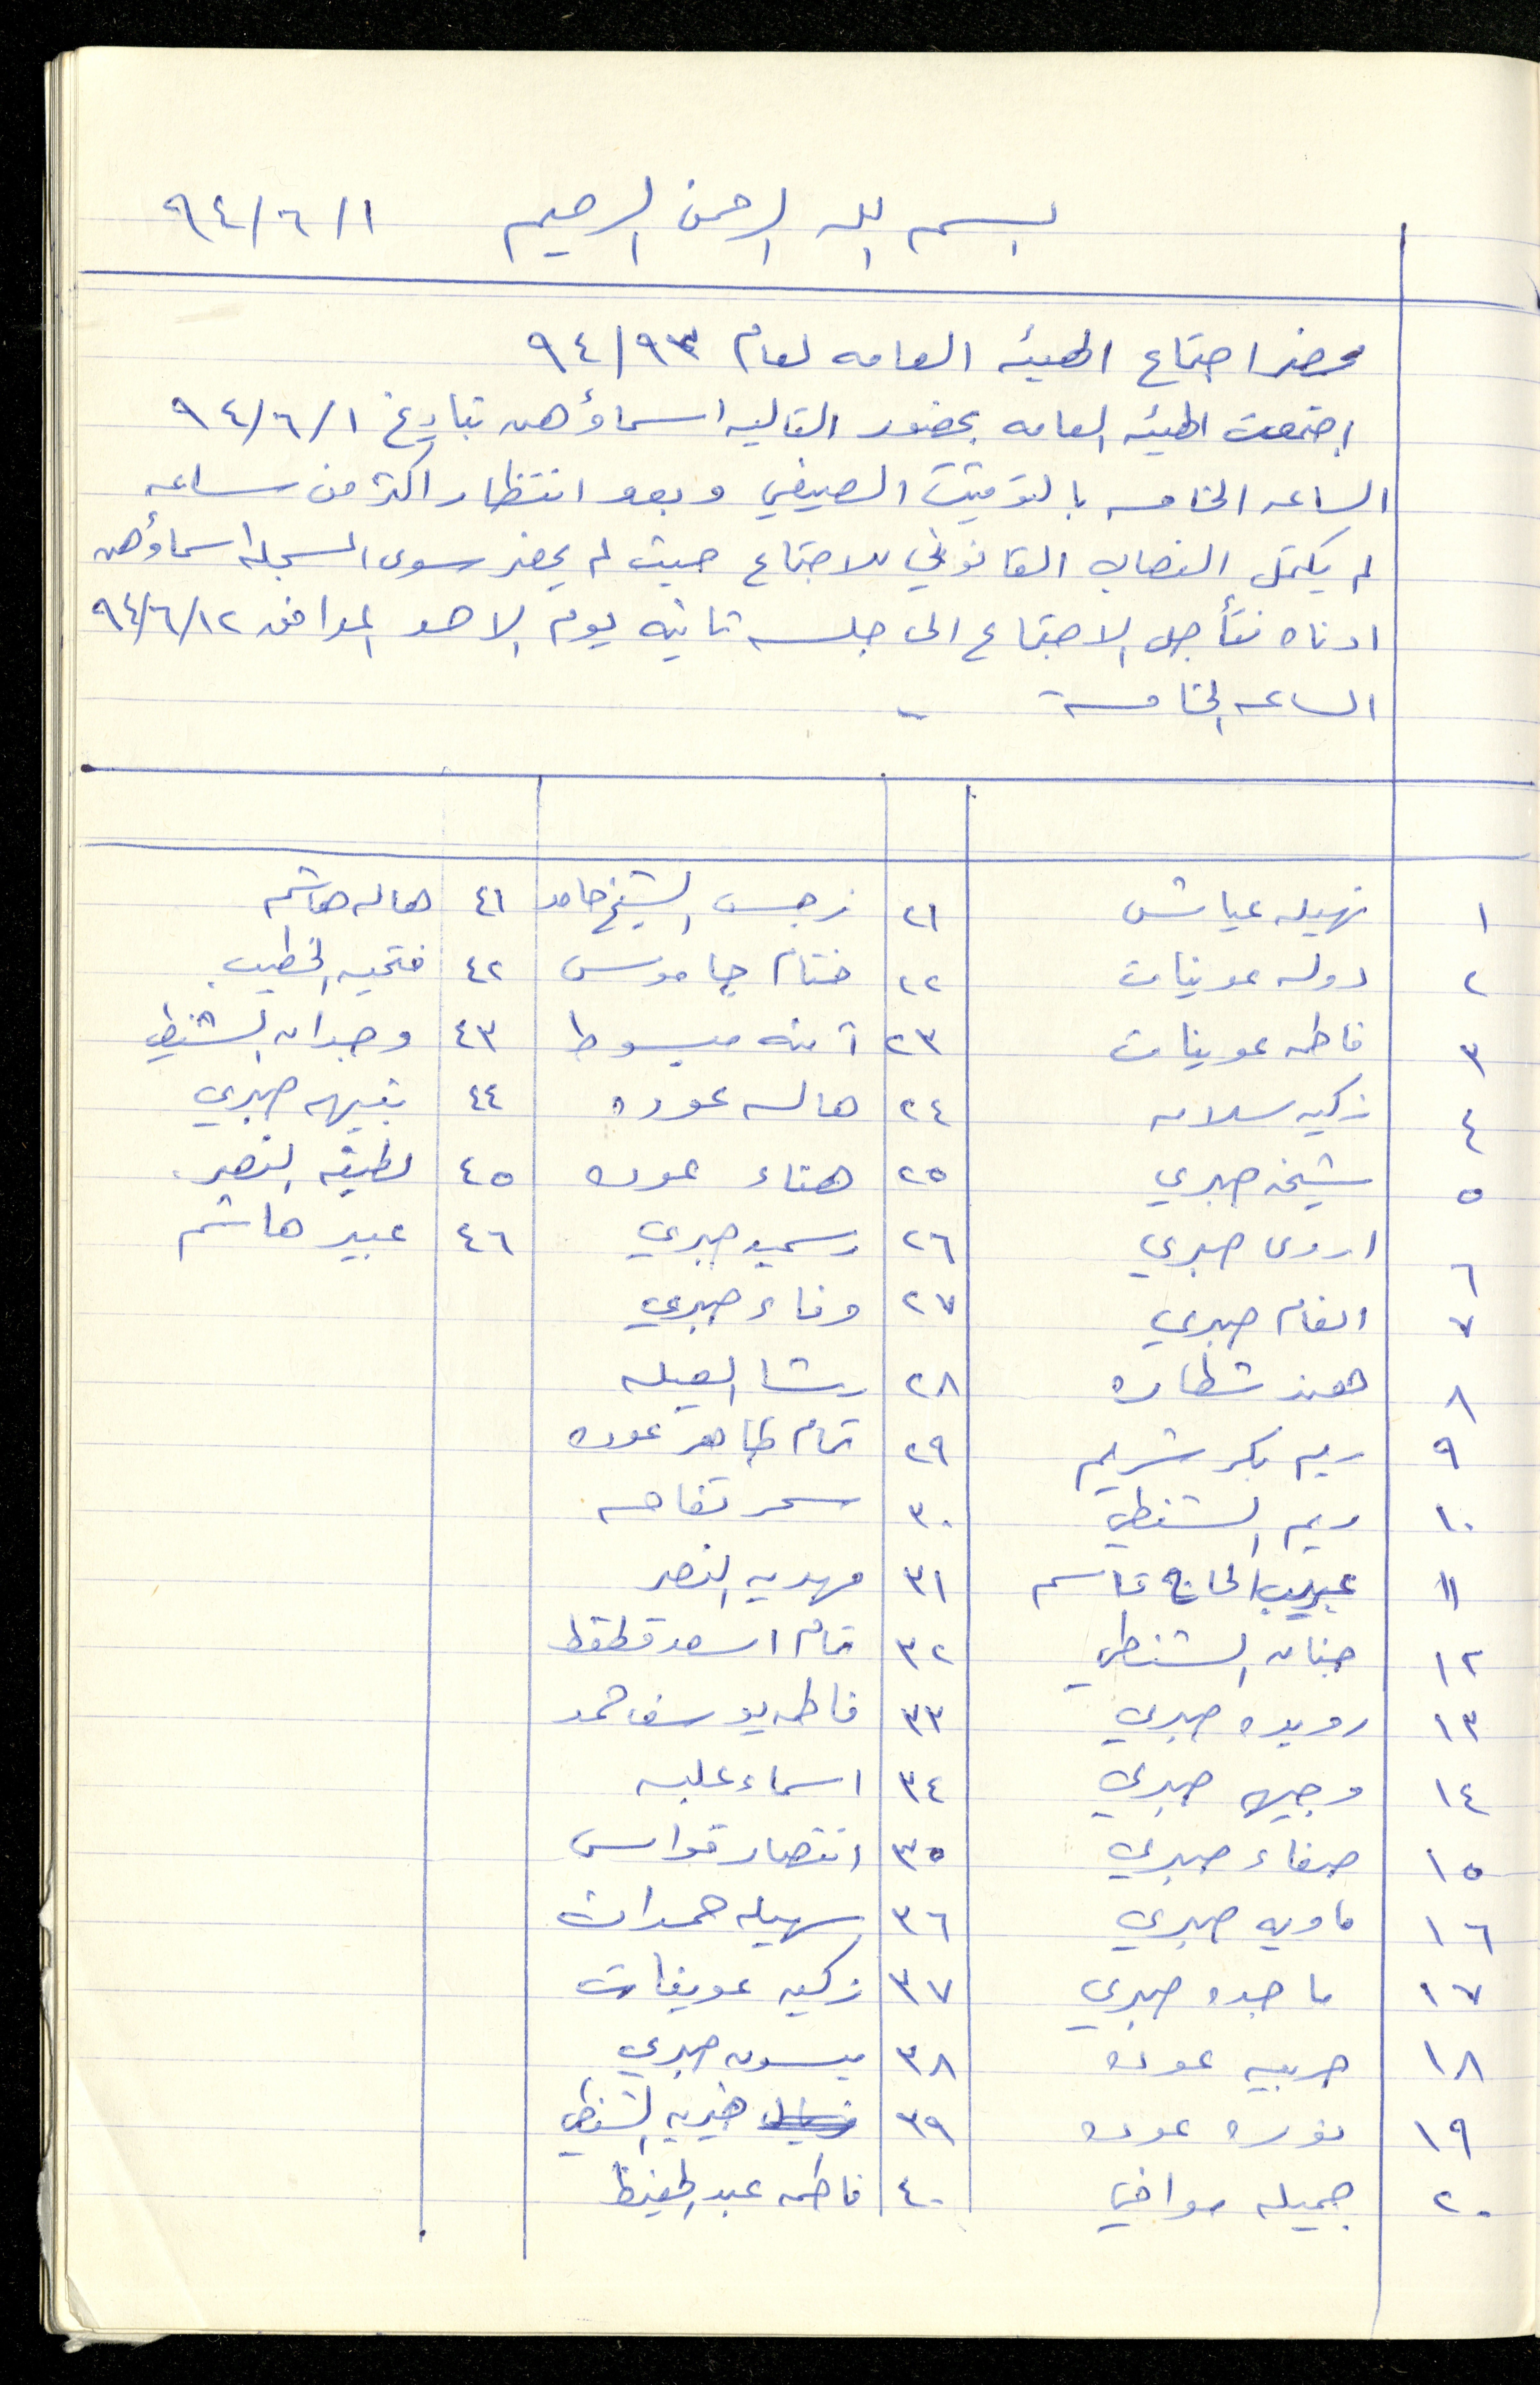 بسم الله الرحمن الرحيم ٩٤/٦/١
محضر اجتماع الهيئه العامه لعام ٩٤/٩٣
اجتمعت الهيئه العامه بحضور التاليه اسماؤهن بتاريخ ٩٤/٦/١
الساعه الخامسه بالتوقيت الصيفي وبعد انتظار اكثر من ساعه
لم يكتمل النصاب القانوني للاجتماع حيث لم يحضر سوى المسجله اسماؤهن
ادناه فتأجل الاجتماع الى جلسه ثانيه يوم الاحد الموافق ٩٤/٦/١٢
الساعه الخامسة -
١ نهيله عياش ٢١ نرجس الشيخ حامد ٤١ هاله هاشم
٢ دوله عوينات ٢٢ ختام جاموس ٤٢ فتحيه الخطيب
٣ فاطمه عوينات ٢٣ آمنه مبسوط ٤٣ وجدان الشنطي
٤ زكيه سلامه ٢٤ هاله عوده ٤٤ نبيهه صبري
٥ شيخه صبري ٢٥ هناء عوده ٤٥ لطيفه النصر
٦ اروى صبري ٢٦ رسميه صبري ٤٦ عبير هاشم
٧ انعام صبري ٢٧ وفاء صبري
٨ هند شطاره ٢٨ رشا العيله
٩ ريم بكر شريم ٢٩ تمام طاهر عوده
١٠ ريم الشنطي ٣٠ سحر تفاحه
١١ الحاج قاسم ٣١ مهديه النصر
١٢ حنان الشنطي ٣٢ تمام اسعد قطقط
١٣ رويده صبري ٣٣ فاطمه يوسف حمد
١٤ وجيهه صبري ٣٤ اسماء علبه
١٥ صفاء صبري ٣٥ انتصار قواس
١٦ ماويه صبري ٣٦ سهيله حمدان
١٧ ماجده صبري ٣٧ زكيه عوينات
١٨ حربيه عوده ٣٨ ميسون صبري
١٩ نوره عوده ٣٩ خيريه الشنطي
٢٠ جميله ٤٠ فاطمه عبد الحفيظ